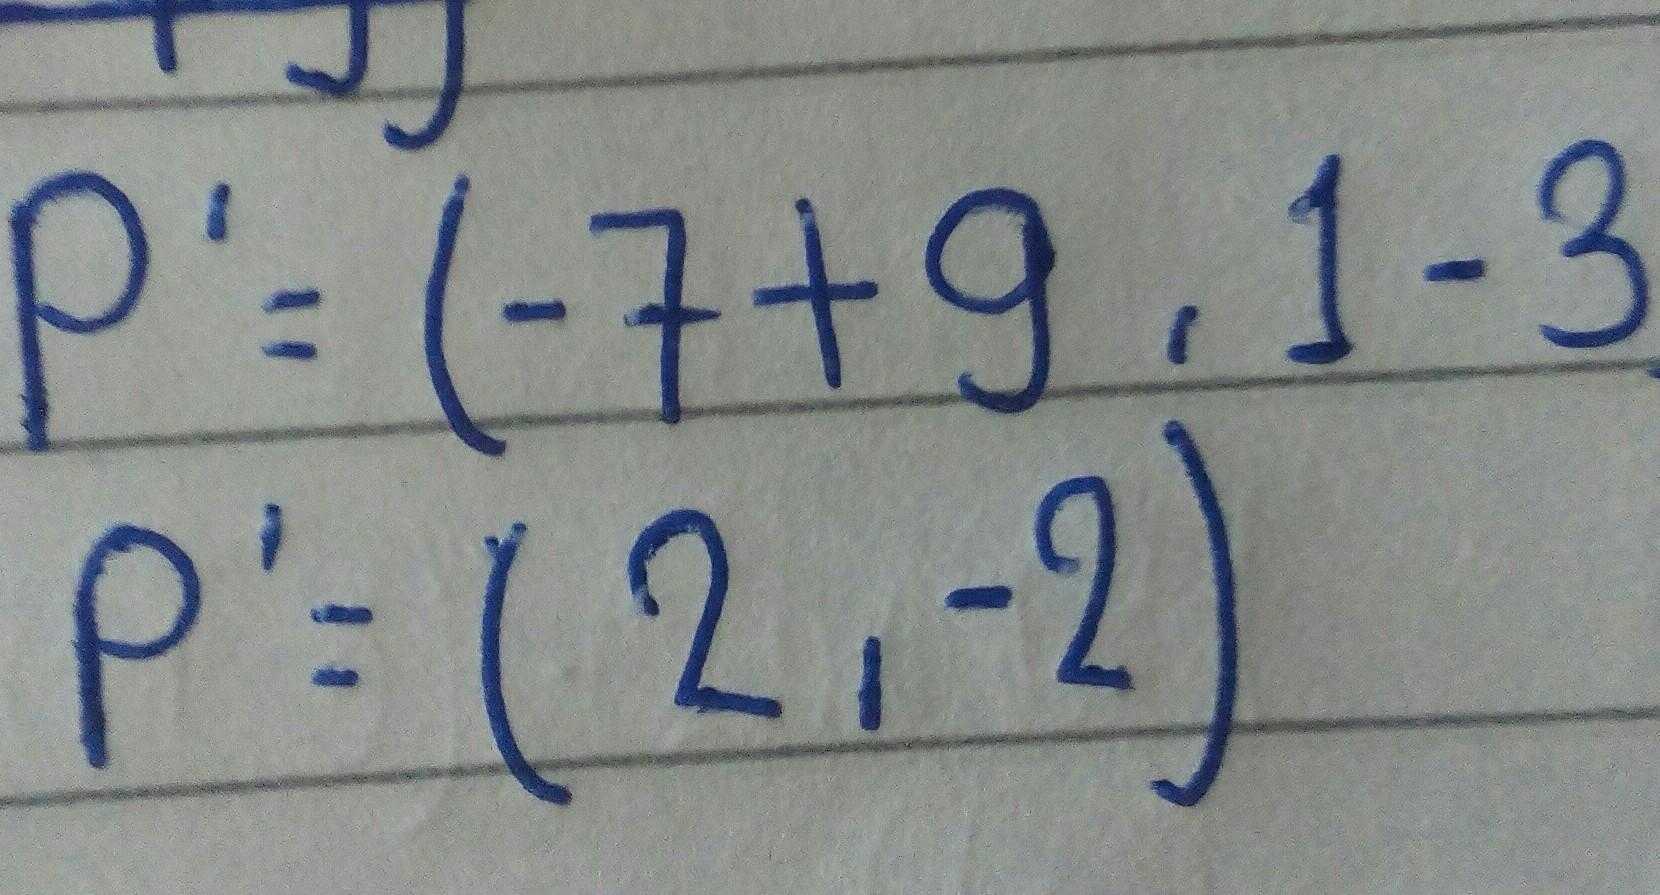 P' = (-7+9, 1-3
P' = (2, -2)